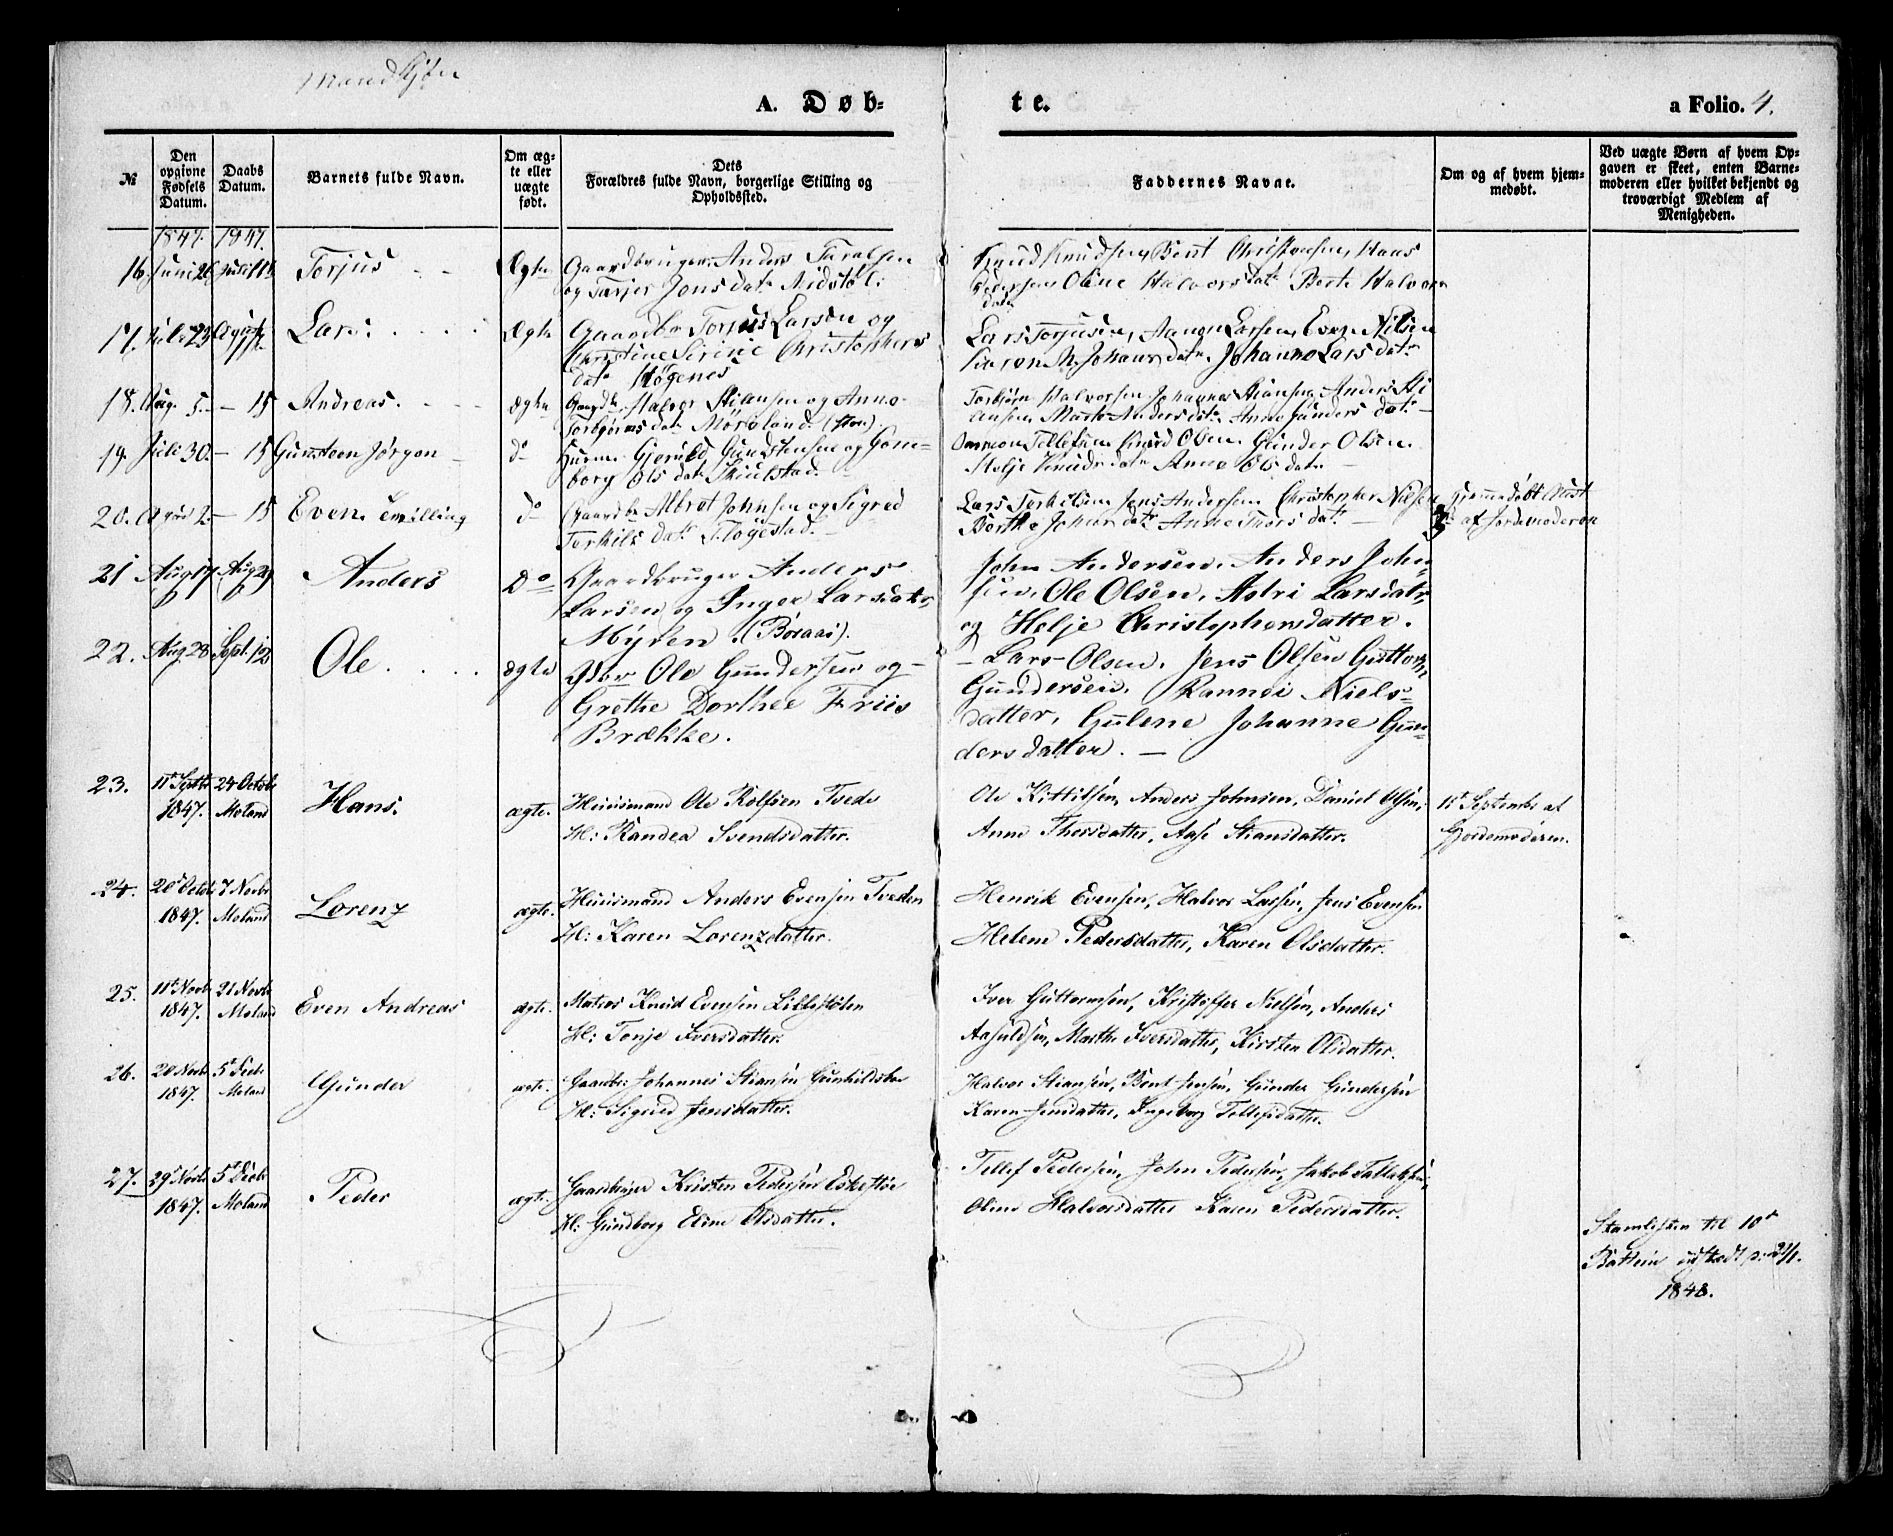 Mandkjøn
A. Døb-
te.
a Folio. 4.
№
Den opgivne Fødsels Datum.
Daabs Datum.
Barnets fulde Navn.
Om ægte eller uægte født.
Dets Forældres fulde Navn, borgerlige Stilling og Opholdssted.
Faddernes Navne.
Om og af hvem hjemmedøbt.
Ved uægte Børn af hvem Opgaven er skeet, enten Barnemoderen eller hvilket bekjendt og troværdigt Medlem af Menigheden.
1847. 1847.
16. Juni 26 Torjus Ægte Gaardbruger Anders Taralsen
og Tarjer Jonsdatr Midstøl:
Knud Knudsen, Bent Christensen, Hans
Pedersen Oline Halvorsdatr Berte Halvors
datr
17. Juli 23 August Lars. Ægte Gaardbr Torjus Larsen og
Christine Sirine Christophers
datr Høgenes
Lars Torjusen, Aanon Larsen, Even Nilsen
Johanne Larsdatr
18. Aug. 5. - 15 Andreas. ægte Gaardbr Halvor Stiansen og Anne
Torbjørnsdatr Møreland.
Torbjørn Halvorsen Johannes Stiansen Anders Sti
ansen Marte Andersdatr Anne Gunders datr
19. Juli 30. - 15 Gunsteen Jørgen do Husm. Gjeruld Gundstensen og Gun-
borg Olsdatr Skiulstad.
Tellefsen Knud Olsen Gunder Olsen.
Helje Knudsdatr Anne Olsdatr
20. August 2. - 15 Even. tvilling do Gaardbr Albret Johnsen og Sigred
Terkilsdatr Fløgestad.
Lars Terkilsen Jens Andersen Christopher Nilsen
Berthe Johnsdatr Anne datr
Hjemmedøbt August
af Jordemoderen
21 Aug 17. Aug 29 Anders Do Gaardbruger Anders
Larsen og Inger Larsdatr,
Myren. (Bosaas).
John Andersen. Anders John-
sen. Ole Olsen. Astri Larsdatr,
og Helje Christophersdatter.
22. Aug 28 Sept. 12 Ole ægte Gbr Ole Gundersen og
Grethe Dorthee Friis
Brække.
Lars Olsen. Jens Olsen Guttorm
Gundersen. Rannei Niels-
datter, Gulene Johanne Gun-
dersdatter.
23. 11t Septbr 1847. 24 Octobr Moland Hans. ægte. Huusmand Ole Rolfsen Tvede
H: Kandea Svendsdatter.
Ole Kittilsen, Anders Johnsen, Daniel Olsen,
Anne Thorsdatter, Aase Stiansdatter.
15t September af
Gjordemoderen.
24. 20 Octobr 1847. 7 Novbr Moland Lorenz ægte. Huusmand Anders Evensen Tveden
H: Karen Lorenzdatter.
Henrik Evensen, Halvor Larsen, Jens Evensen
Helene Pedersdatter, Karen Olsdatter.
25. 11t Novbr 1847. 21 Novbr Moland Even Andreas ægte. Matros Knud Evensen Lillestølen
H: Tonje Iversdatter.
Iver Guttormsen, Kristoffer Nielsen, Anders
Aasuldsen, Marthe Iversdatter, Kirsten Olsdatter.
26. 20 Novbr 1847. 5t Decbr Moland Gunder ægte. Gaardbr: Johannes Stiansen Gunhildsbo
H: Sigrid Jensdatter.
Halvor Stiansen, Bent Jensen, Gunder Gundersen
Karen Jensdatter, Ingeborg Tellefsdatter.
27. 29 Novbr 1847. 5t Decbr Moland Peder ægte. Gaardbruger Kristen Pedersen Eskestøe
H: Gundborg Eline Olsdatter.
Tellef Pedersen, John Pedersen, Jakob Tallaksen,
Oline Halvorsdatter Karen Pedersdatter.
til 10t
udstedt p: 21/1.
1848.